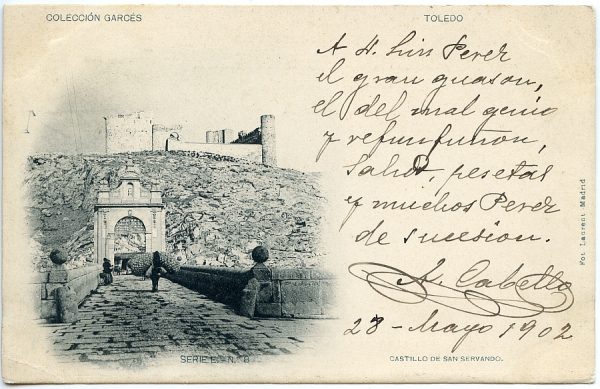 COLECCIÓN GARCÉS
TOLEDO
A D. Luis Perez
el gran guason,
el del mal genio
y refunfuñon,
Salud, pesetas
y muchos Perez
de sucesion.
A. Cabello
28 - Mayo 1902
Fot Laurent Madrid
SERIE E. N. 8
CASTILLO DE SAN SERVANDO.